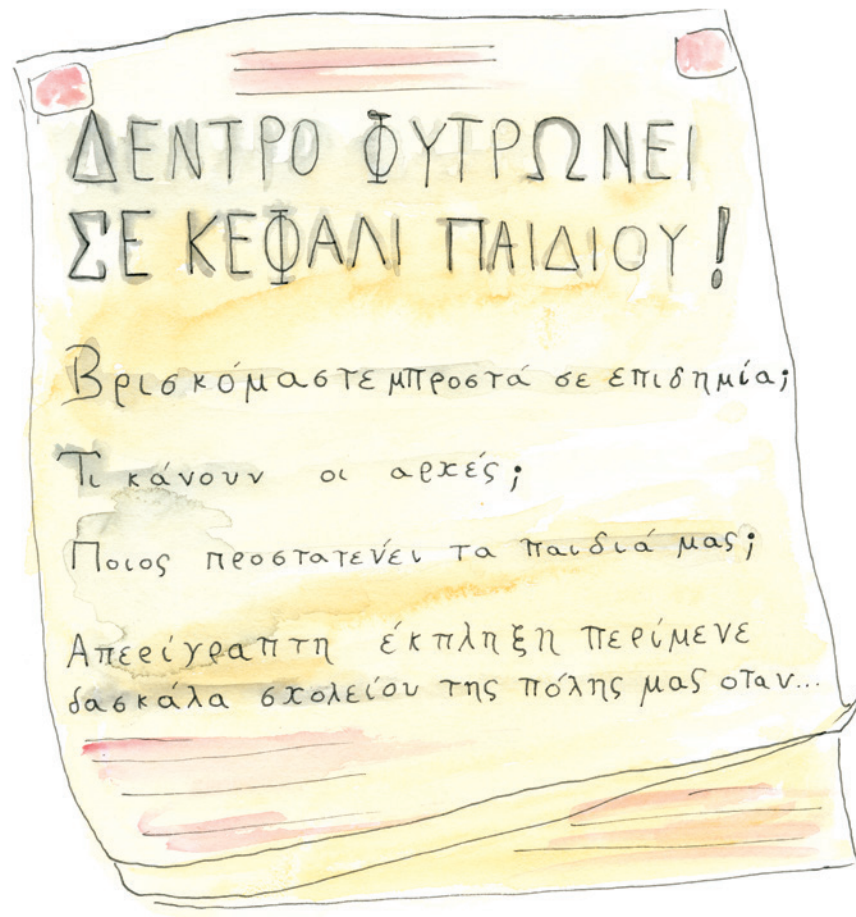 ΔΕΝΤΡΟ ΦΥΤΡΩΝΕΙ
ΣΕ ΚΕΦΑΛΙ ΠΑΙΔΙΟΥ!
Βρισκόμαστε μπροστά σε επιδημία;
Τι κάνουν οι αρχές;
Ποιος προστατεύει τα παιδιά μας;
Απερίγραπτη έκπληξη περίμενε
δασκάλα σχολείου της πόλης μας οταν...